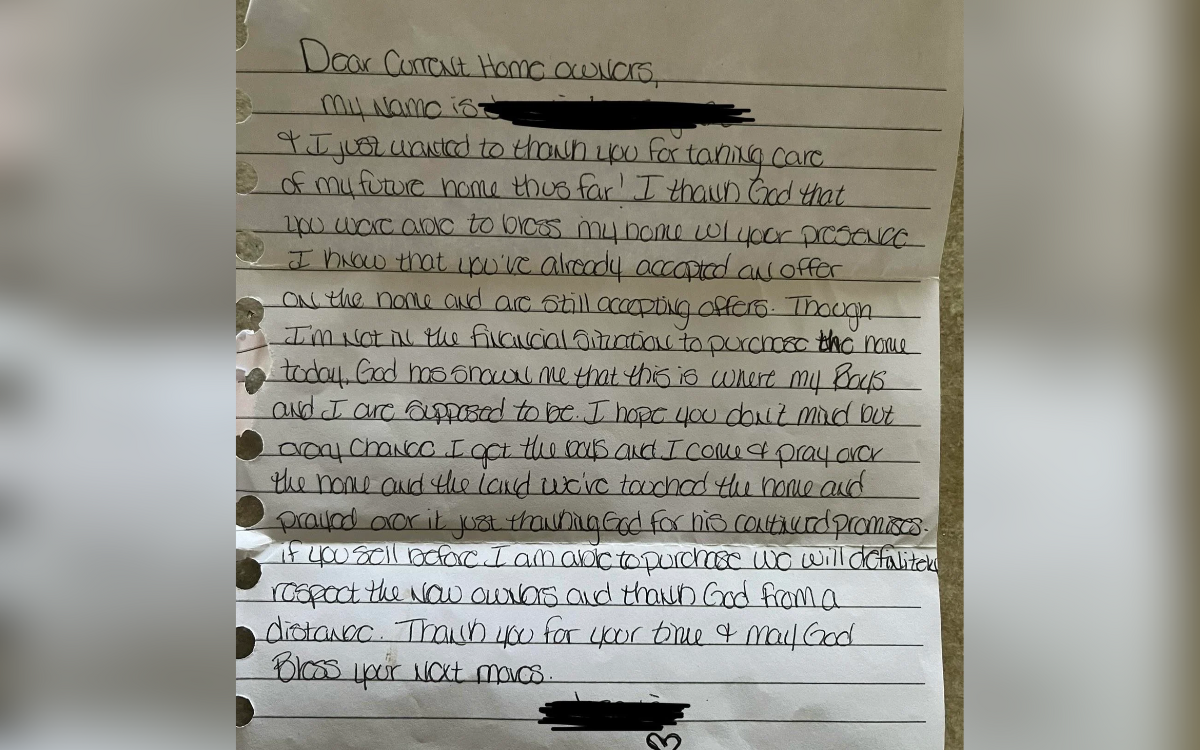 Dear Current Home owners,
My Name is
& I just wanted to thank you for taking care
of my future home thus far! I thank God that
you were able to bless my home w/ your presence
I know that you've already accepted an offer
on the home and are still accepting offers. Though
I'm not in the financial situation to purchase the home
today, God has shown me that this is where my Boys
and I are supposed to be. I hope you don't mind but
every chance I get the boys and I come & pray over
the home and the land we've touched the home and
prayed over it just thanking God for his continued promises.
if you sell before I am able to purchase we will definitely
respect the new owners and thank God from a
distance. Thank you for your time & may God
Bless your next moves.